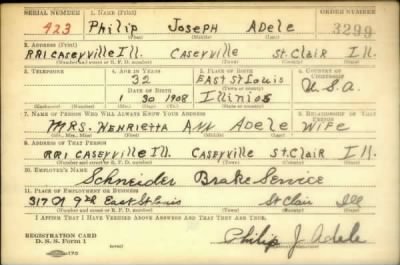 SERIAL NUMBER 1. NAME (Print) ORDER NUMBER
423 Philip Joseph Adele 3299
(First) (Middle) (Last)
2. ADDRESS (Print)
RR1 CASEYVILLE Ill. CASEYVILLE St. Clair Ill.
(Number and street or R. F. D. number) (Town) (County) (State)
3. TELEPHONE 4. AGE IN YEARS 5. PLACE OF BIRTH 6. COUNTRY OF CITIZENSHIP
32 EAST St Louis
(Town or county)
DATE OF BIRTH
1 30 1908 Illinios U.S.A.
(Exchange) (Number) (Mo.) (Day) (Yr.) (State or country)
7. NAME OF PERSON WHO WILL ALWAYS KNOW YOUR ADDRESS 8. RELATIONSHIP OF THAT PERSON
MRS. HENRIETTA ANN Adele WIFE
(Mr., Mrs., Miss) (First) (Middle) (Last)
9. ADDRESS OF THAT PERSON
RR1 CASEYVILLE Ill. CASEYVILLE St. Clair Ill.
(Number and street or R. F. D. number) (Town) (County) (State)
10. EMPLOYER'S NAME
Schneider Brake Service
11. PLACE OF EMPLOYMENT OR BUSINESS
317 N 9th East St Louis St Clair Ill
(Number and street or R. F. D. number) (Town) (County) (State)
I AFFIRM THAT I HAVE VERIFIED ABOVE ANSWERS AND THAT THEY ARE TRUE.
REGISTRATION CARD
D. S. S. Form 1 Philip J. Adele